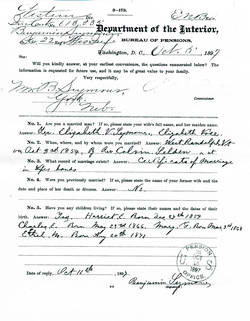 3-173.
Department of the Interior,
BUREAU OF PENSIONS,
Washington, D. C., Oct. 5, 1897
Will you kindly answer, at your earliest convenience, the questions enumerated below? The information is
requested for future use, and it may be of great value to your family.
Very respectfully,
Wm. B Seymour
York
Neb.
Commissioner.
No. 1. Are you a married man? If so, please state your wife's full name, and her maiden name.
Answer: Yes. Elizabeth V. Seymour, Elizabeth
No. 2. When, where, and by whom were you married? Answer: West Randolph Vt
on Oct 3rd 1854, By Rev Calvin Selden
No. 3. What record of marriage exists? Answer: Certificate of Marriage
in Wifes hands
No. 4. Were you previously married? If so, please state the name of your former wife and the
date and place of her death or divorce. Answer: No.
No. 5. Have you any children living? If so, please state their names and the dates of their
birth. Answer: Yes, Harriet C. Born Dec 29th 1857
Charles C. Born May 23rd, 1866, Mary, F. Born Mar 3rd 1868
Ethel, M. Born Aug 20th 1871
PENSION OFFICE
1897
U S
Date of reply, Oct 11th 1897
Benjamin Seymour